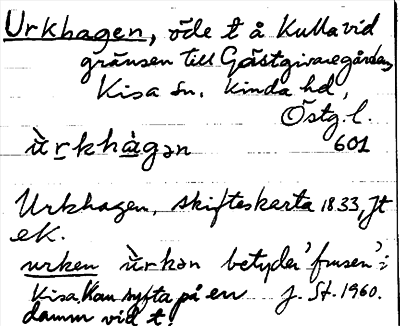 Urkhagen, öde t å Kulla vid
gränsen till Gästgivaregården,
Kisa sn. Kinda hd,
Östg. l.
ùrkhàgən 601
Urkhagen, skifteskarta 1833, jt
ek.
urken ùrkən betyder 'frusen' i
Kisa. Kan syfta på en J. St. 1960.
damm vid t.